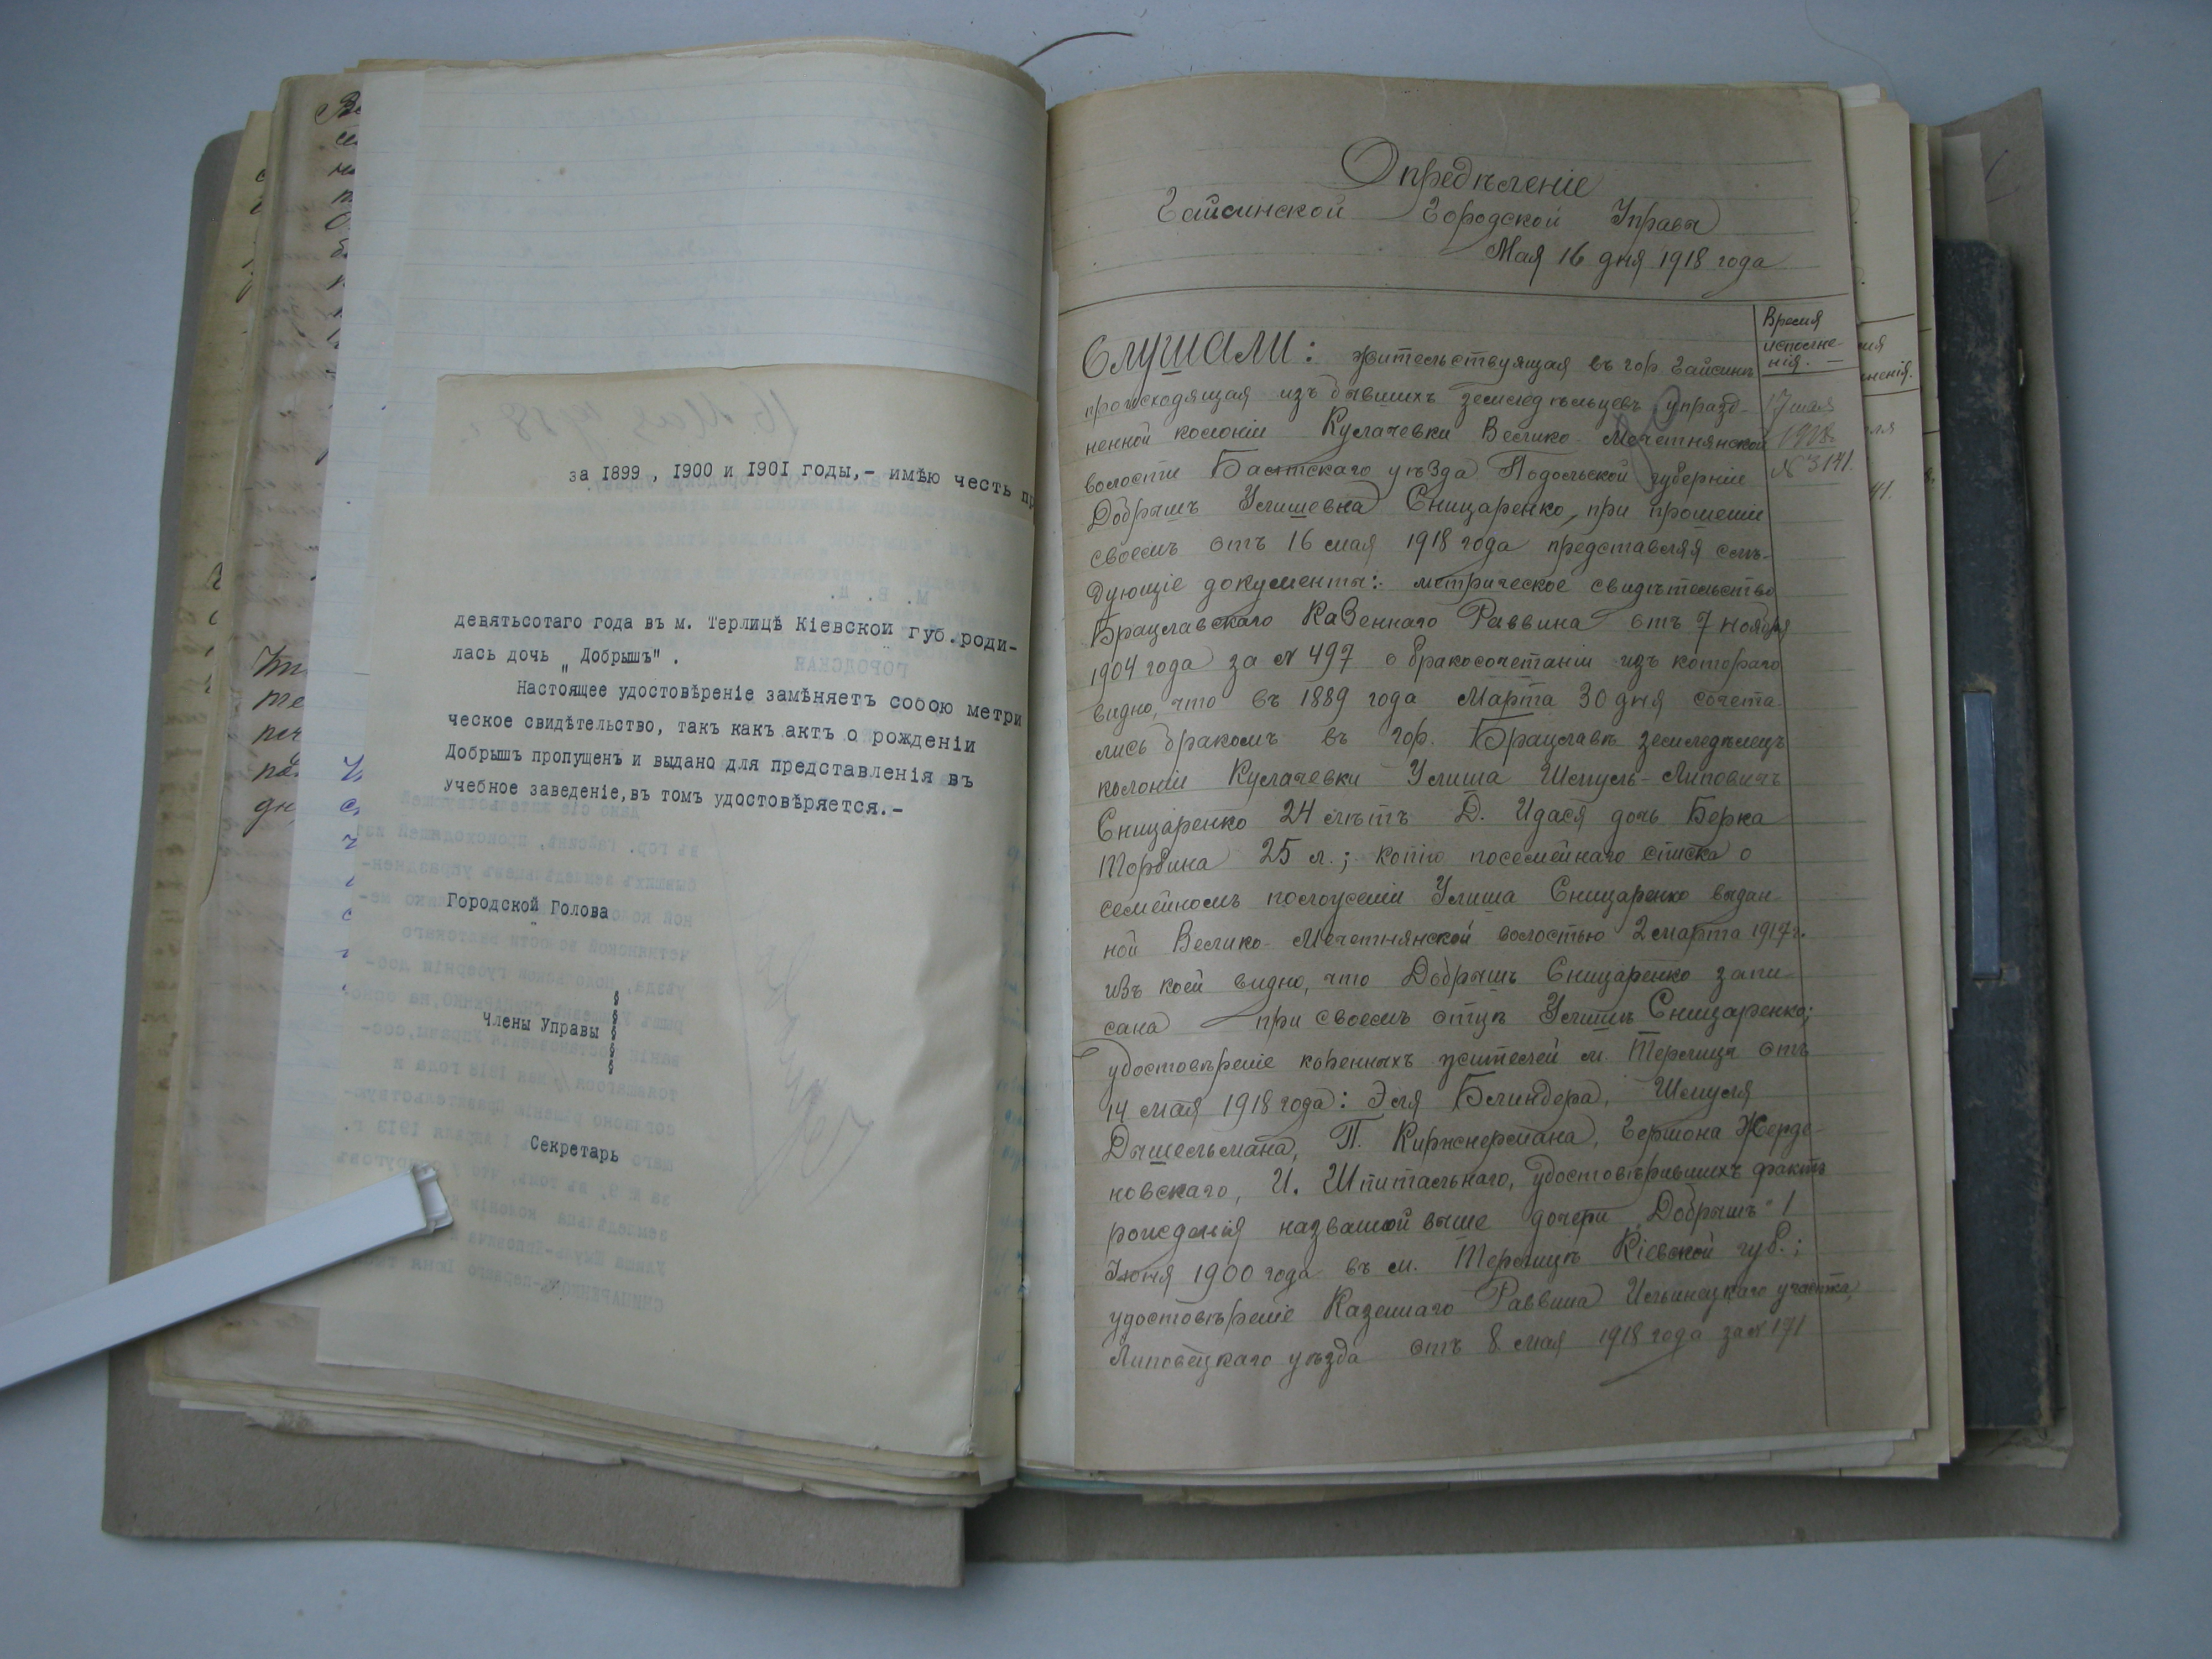 за 1899 , 1900 и 1901 годы,- имѣю честь пр
М. В. Д.
девятьсотаго года въ м. Терлицѣ Кіевской губ.роди-
лась дочь „ Добрышъ" .
Настоящее удостовѣреніе замѣняетъ собою метри
ческое свидѣтельство, такъ какъ актъ о рожденіи
Добрышъ пропущенъ и выдано для представленія въ
Учебное заведеніе,въ томъ удостовѣряется.-
Городской Голова
Члены Управы
Секретарь
Опредѣленіе
Гайсинской Городской Управы
Мая 16 дня 1918 года
Время
исполне-
нія.
17 мая
1918г.
№ 3141.
Слушали: жительствующая въ гор. Гайсинѣ
происходящая изъ бывшихъ земледѣльцевъ упразд-
ненной колоніи Кулачевки Велико-Мечетнянской
волости Балтскаго уѣзда Подольской губерніи
Добрышъ Улишевна Сницаренко, при прошеніи
своемъ отъ 16 мая 1918 года представляя слѣ-
дующіе документы: метрическое свидѣтельство
Брацлавскаго Казеннаго Раввина отъ 7 ноября
1904 года за № 497 о бракосочетаніи изъ котораго
видно, что въ 1889 года Марта 30 дня сочета
лись бракомъ въ гор. Брацлавѣ земледѣлецъ
колоніи Кулачевки Улиша Шмуль-Липовичъ
Сницаренко 24 лѣтъ Д. Идася дочь Берка
Торбина 25 л.; копію посемейнаго списка о
семейномъ положеніи Улиша Сницаренко выдан
ной Велико-Мечетнянской волостью 2 марта 1917г.
изъ коей видно, что Добрышъ Сницаренко запи
сана при своемъ отцѣ Улишѣ Сницаренко;
удостовѣреніе коренныхъ жителей м. Терлица отъ
14 мая 1918 года: Эля Блиндера, Шмуля
Дышельмана, П. Киржнермана, Гершона Жерде-
новскаго, И. Шпитальнаго, удостовѣрившихъ фактъ
рожденія названной выше дочери „Добрышъ" 1
Іюня 1900 года въ м. Терлицѣ Кіевской губ.;
удостовѣреніе Казеннаго Раввина Ильинецкаго участка,
Липовецкаго уѣзда отъ 8 мая 1918 года за № 171